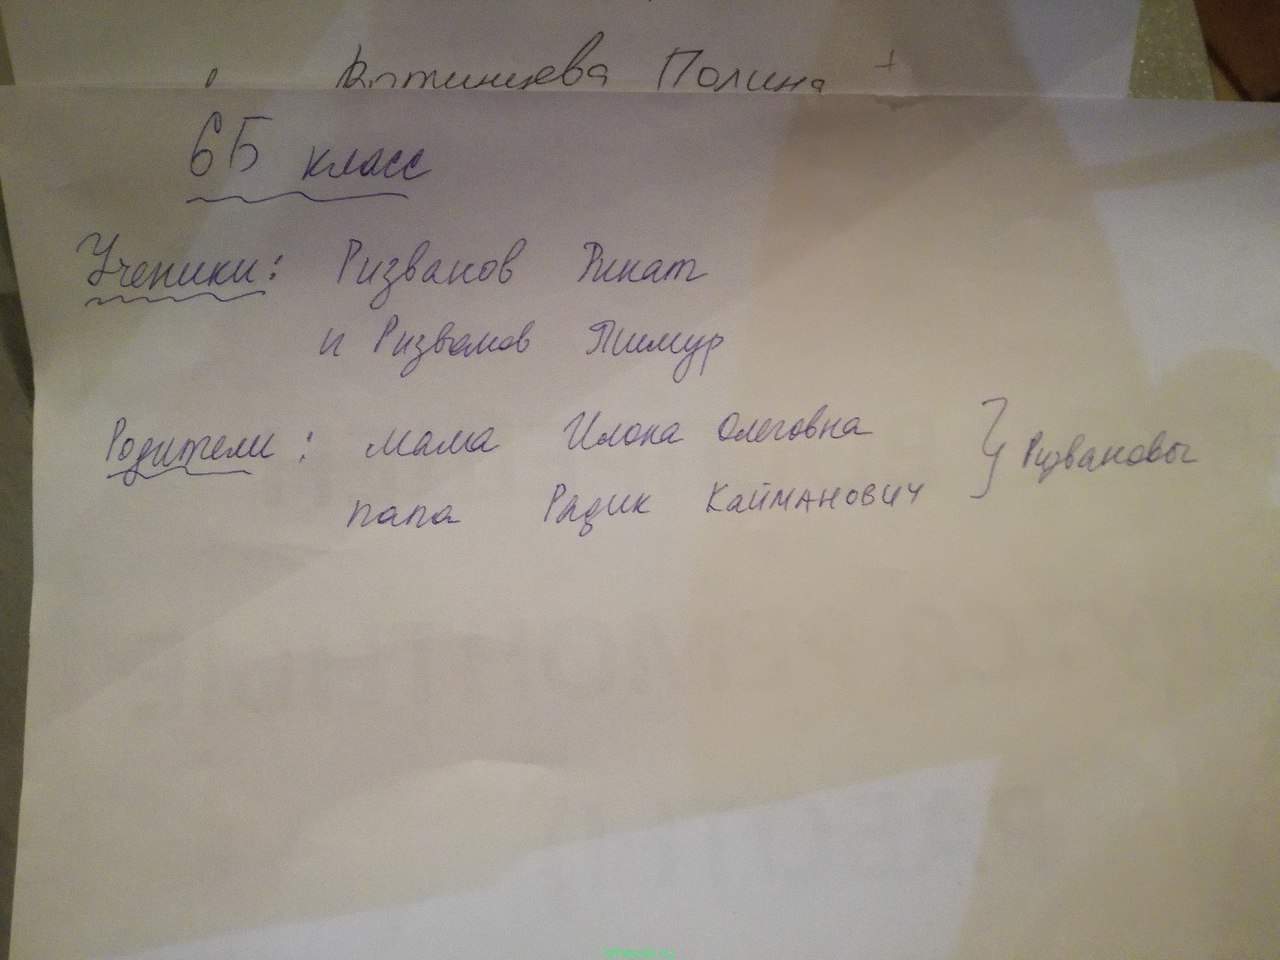 Полина +
6Б класс
Ученики: Ризванов Ринат
и Ризванов Тимур
Родители: мама Илона Олеговна
папа Радик Кайманович } Ризвановы